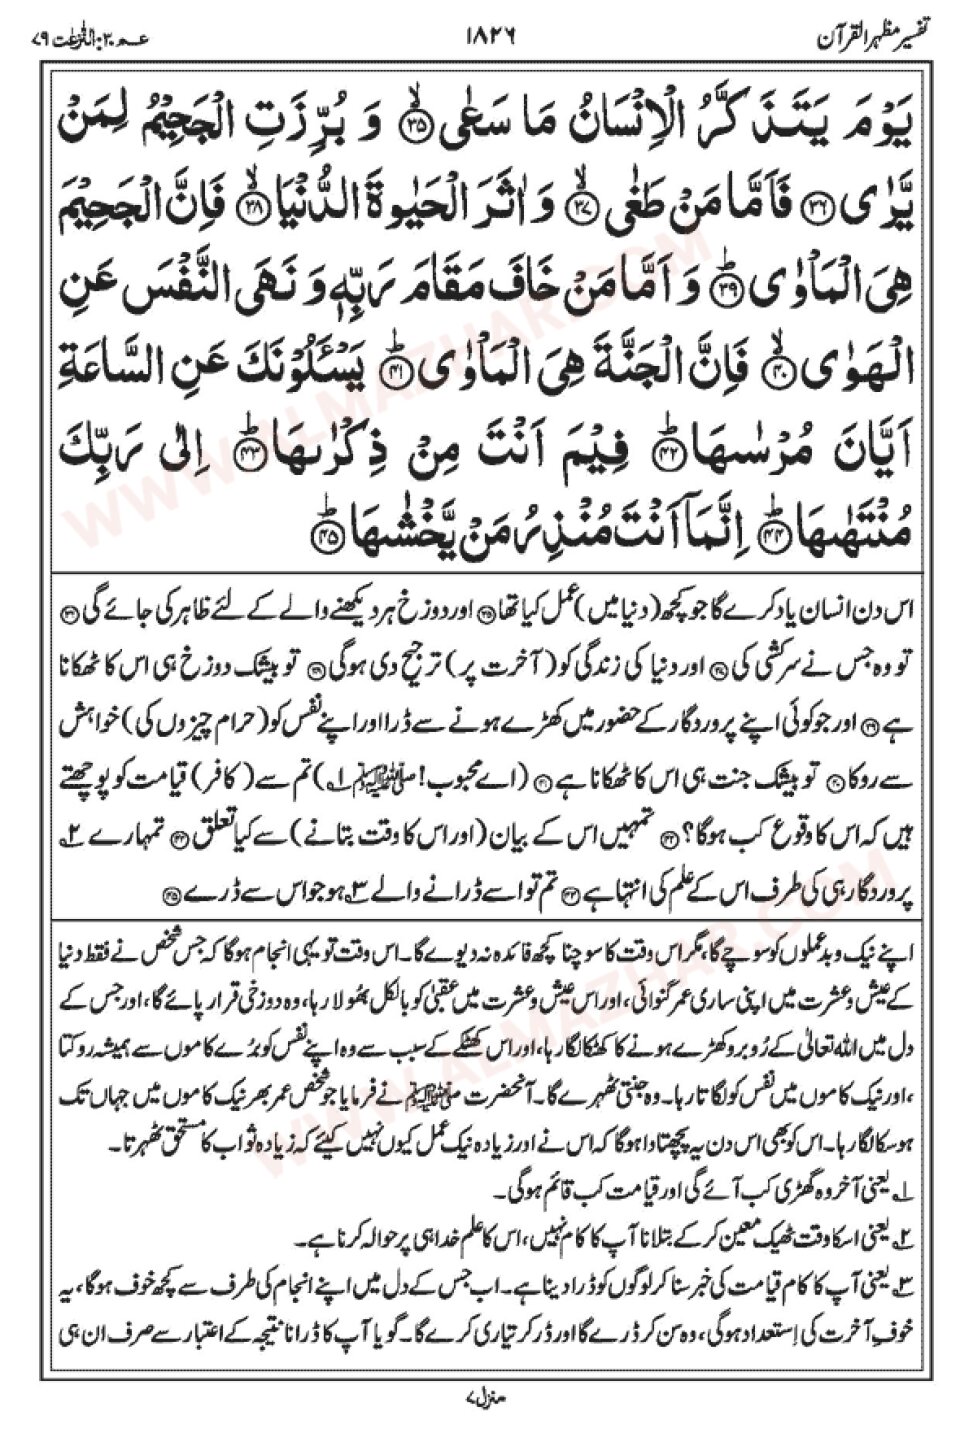 تفسیر مظہر القرآن
۱۸۲۶
عـم ۳۰: النّٰزعٰت ۷۹
يَوْمَ يَتَذَكَّرُ الْاِنْسَانُ مَا سَعٰى ۙ﴿۳۵﴾ وَ بُرِّزَتِ الْجَحِيْمُ لِمَنْ
يَّرٰى ﴿۳۶﴾ فَاَمَّا مَنْ طَغٰى ۙ﴿۳۷﴾ وَ اٰثَرَ الْحَيٰوةَ الدُّنْيَا ۙ﴿۳۸﴾ فَاِنَّ الْجَحِيْمَ
هِيَ الْمَاْوٰى ؕ﴿۳۹﴾ وَ اَمَّا مَنْ خَافَ مَقَامَ رَبِّهٖ وَ نَهَى النَّفْسَ عَنِ
الْهَوٰى ۙ﴿۴۰﴾ فَاِنَّ الْجَنَّةَ هِيَ الْمَاْوٰى ؕ﴿۴۱﴾ يَسْـَٔلُوْنَكَ عَنِ السَّاعَةِ
اَيَّانَ مُرْسٰىهَا ؕ﴿۴۲﴾ فِيْمَ اَنْتَ مِنْ ذِكْرٰىهَا ؕ﴿۴۳﴾ اِلٰى رَبِّكَ
مُنْتَهٰىهَا ؕ﴿۴۴﴾ اِنَّمَاۤ اَنْتَ مُنْذِرُ مَنْ يَّخْشٰىهَا ؕ﴿۴۵﴾
اس دن انسان یاد کرے گا جو کچھ (دنیا میں) عمل کیا تھا ﴿۳۵﴾ اور دوزخ ہر دیکھنے والے کے لئے ظاہر کی جائے گی ﴿۳۶﴾
تو وہ جس نے سرکشی کی ﴿۳۷﴾ اور دنیا کی زندگی کو (آخرت پر) ترجیح دی ہوگی ﴿۳۸﴾ تو بیشک دوزخ ہی اس کا ٹھکانا
ہے ﴿۳۹﴾ اور جو کوئی اپنے پروردگار کے حضور میں کھڑے ہونے سے ڈرا اور اپنے نفس کو (حرام چیزوں کی) خواہش
سے روکا ﴿۴۰﴾ تو بیشک جنت ہی اس کا ٹھکانا ہے ﴿۴۱﴾ (اے محبوب! ﷺ ۱؎) تم سے (کافر) قیامت کو پوچھتے
ہیں کہ اس کا وقوع کب ہوگا؟ ﴿۴۲﴾ تمہیں اس کے بیان (اور اس کا وقت بتانے) سے کیا تعلق ﴿۴۳﴾ تمہارے ۲؎
پروردگار ہی کی طرف اس کے علم کی انتہا ہے ﴿۴۴﴾ تم تو اسے ڈرانے والے ۳؎ ہو جو اس سے ڈرے ﴿۴۵﴾
اپنے نیک و بد عملوں کو سوچے گا، مگر اس وقت کا سوچنا کچھ فائدہ نہ دیوے گا۔ اس وقت تو یہی انجام ہوگا کہ جس شخص نے فقط دنیا
کے عیش و عشرت میں اپنی ساری عمر گنوائی، اور اس عیش و عشرت میں عقبیٰ کو بالکل بھولا رہا، وہ دوزخی قرار پائے گا، اور جس کے
دل میں اللہ تعالیٰ کے رُوبرو کھڑے ہونے کا کھٹکا لگا رہا، اور اس کھٹکے کے سبب سے وہ اپنے نفس کو بُرے کاموں سے ہمیشہ روکتا
،اور نیک کاموں میں نفس کو لگاتا رہا۔ وہ جنتی ٹھہرے گا۔ آنحضرت ﷺ نے فرمایا جو شخص عمر بھر نیک کاموں میں جہاں تک
ہو سکا لگا رہا۔ اس کو بھی اس دن یہ پچھتاوا ہوگا کہ اس نے اور زیادہ نیک عمل کیوں نہیں کیئے کہ زیادہ ثواب کا مستحق ٹھہرتا۔
۱؎ یعنی آخر وہ گھڑی کب آئے گی اور قیامت کب قائم ہوگی۔
۲؎ یعنی اسکا وقت ٹھیک معین کر کے بتلانا آپ کا کام نہیں، اس کا علم خدا ہی پر حوالہ کرنا ہے۔
۳؎ یعنی آپ کا کام قیامت کی خبر سنا کر لوگوں کو ڈرا دینا ہے۔ اب جس کے دل میں اپنے انجام کی طرف سے کچھ خوف ہوگا، یہ
خوفِ آخرت کی اِستعداد ہوگی، وہ سن کر ڈرے گا اور ڈر کر تیاری کرے گا۔ گویا آپ کا ڈرانا نتیجہ کے اعتبار سے صرف ان ہی
منزل ۷
WWW.ALMAZHAR.COM
WWW.ALMAZHAR.COM